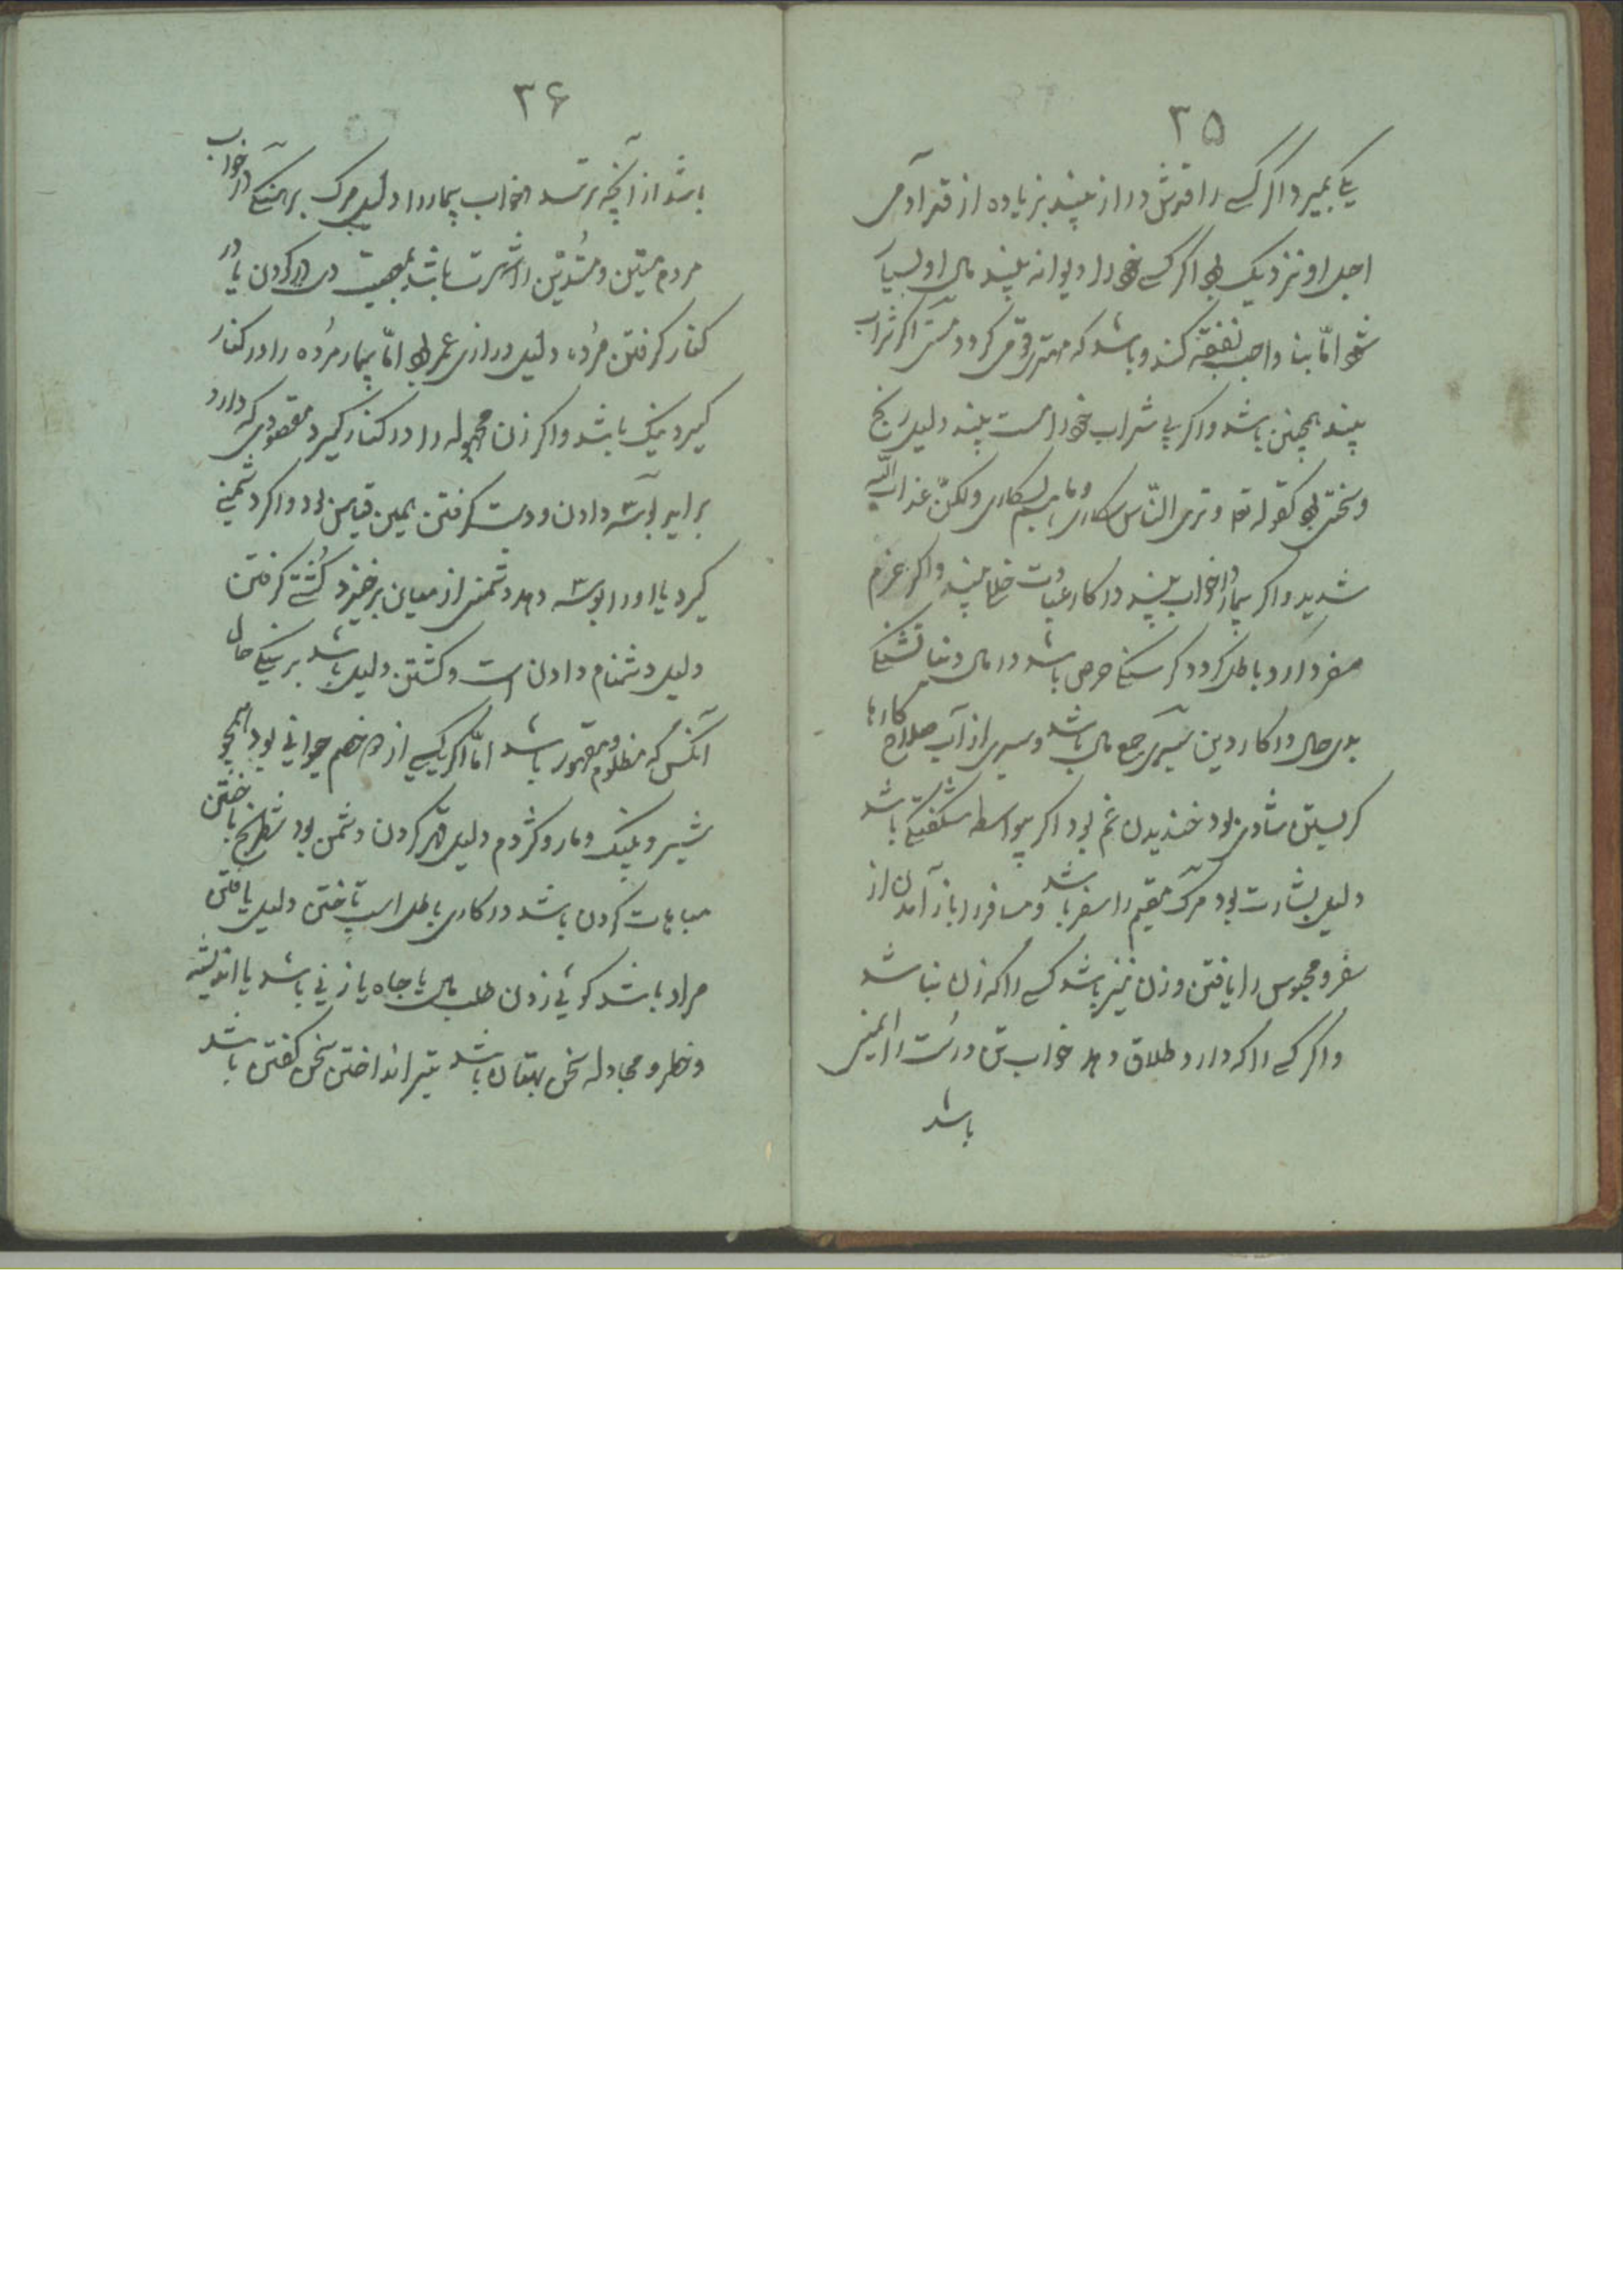 ۳۵
یکے بمیرد اکر کسے را قدش دراز بیند بزیاده از قد آدمی
اجل او نزدیک بود اکر کسے خود را دیوانه بیند مال او بسیار
شود امّا بنا واجب نفقه کند و باشد که مهتر قومی کردد مستی اکر شراب
بیند همچنین باشد و اکر بے شراب خود را مست بیند دلیل رنج
و سختی بود کقوله تع و تری النّاس سکاری و ما هم بسکاری ولکنّ عذاب اللّه
شدید و اکر بیمار در خواب بیند در کار عبادت خطا بیند و اکر عزم
سفر دارد باطل کردد کرسنکے حرص باشد در مال دنیا تشنکے
بدی حال در کار دین سیری جمع مال باشد و سیری از آب صلاح کارها
کریستن شادی بود خندیدن غم بود اکر بواسطه شکفتیکے باشد
دلیل بشارت بود مرک مقیم را سفر باشد و مسافر را باز آمدن از
سفر و محبوس را یافتن و زن نیز باشد کسے را که زن نباشد
و اکر کسے را که دارد طلاق دهد خواب تن درست را ایمنی
باشد
۳۶
باشد از آنچه ترسد و خواب بیمار را دلیل مرک برهنکے در خواب
مردم متین و متدین را شهرت باشد بمصیبت در کردن یا در
کنار کرفتن مرده دلیل درازی عمر بود امّا بیمار مرده را در کنار
کیرد نیک باشد و اکر زن مجهوله را در کنار کیرد مقصودی که دارد
برآید بوسه دادن و دست کرفتن همین قیاس بود و اکر دشمنے
کیرد یا او را بوسه دهد دشمنی از میان برخیزد کُشتے کرفتن
دلیل دشنام دادن است و کشتن دلیل باشد بر نیکے حال
آنکس که مظلوم و مقهور باشد امّا اکر یکے از دو خصم حیوانی بود همچو
شیر و پلنک و مار و کژدم دلیل قهر کردن دشمن بود شطرنج باختن
مباهات کردن باشد در کاری باطل اسپ تاختن دلیل یافتن
مراد باشد کوئی زدن طلب مال یا جاه یا زنی باشد یا اندیشه
و خطر و مجادله سخن بهتان باشد تیر انداختن سخن کفتن باشد